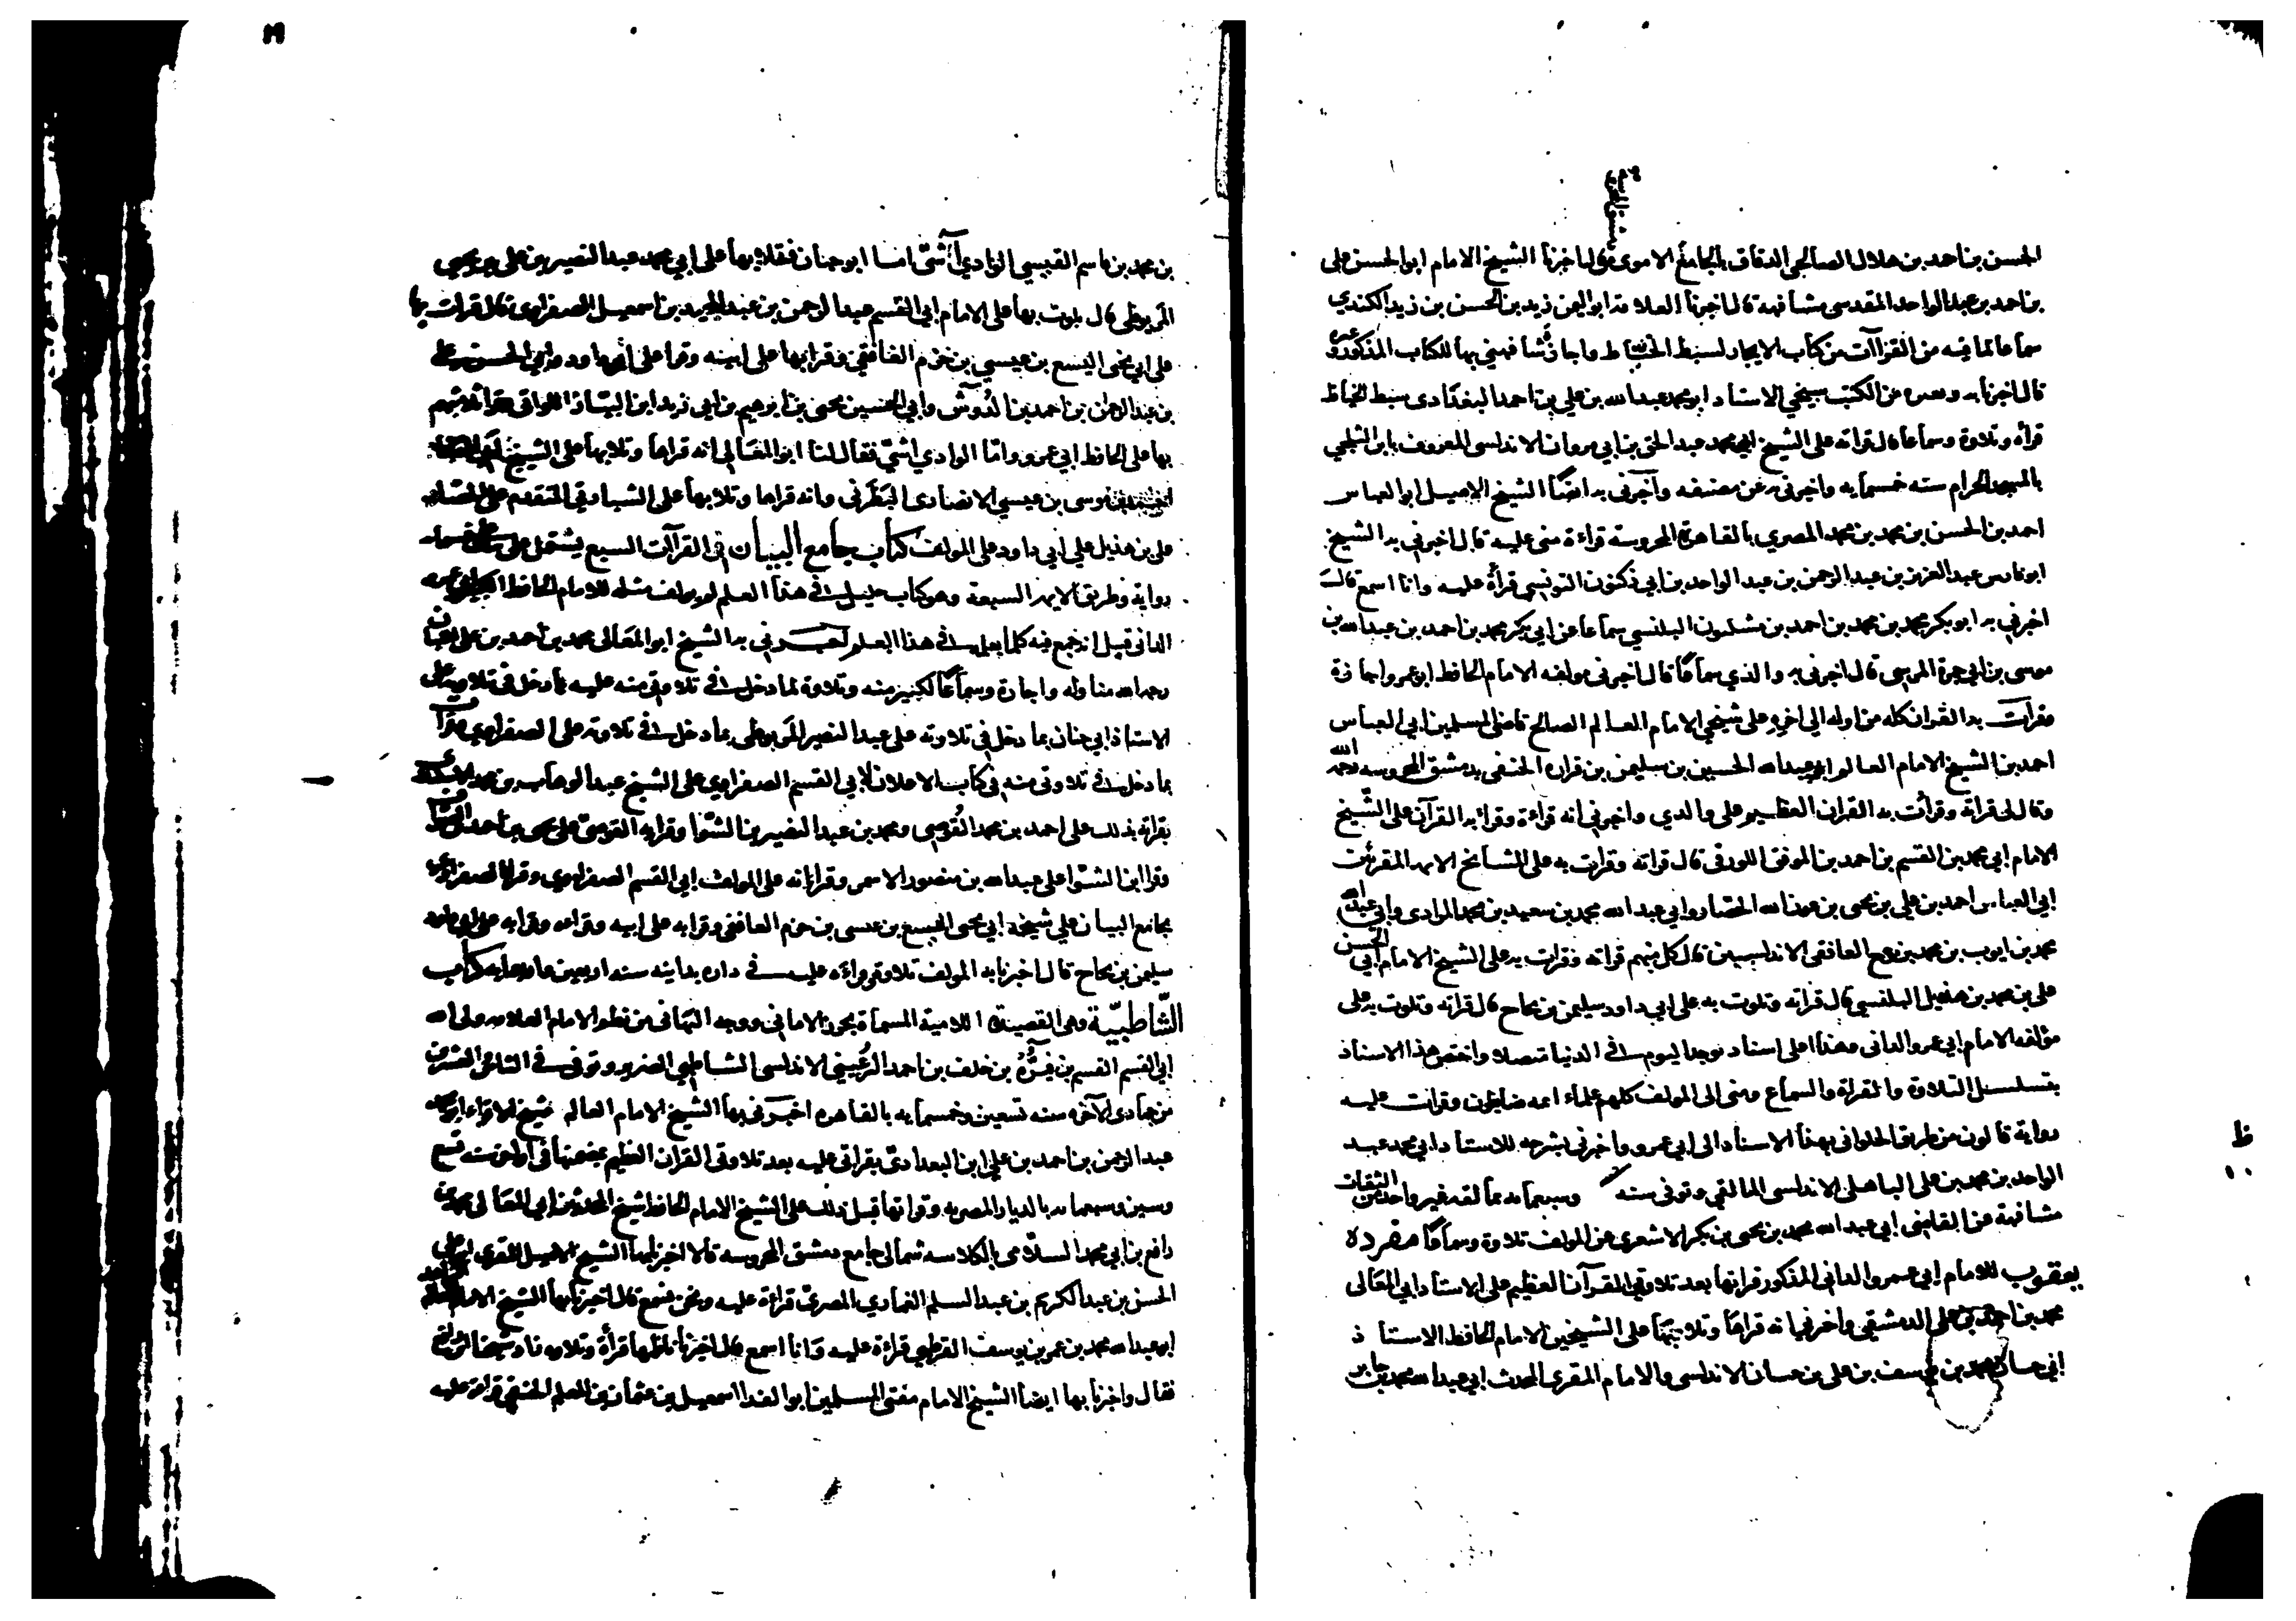 الحسن بن احمد بن هلال الصالحي الدقاق بالجامع الاموي قال اخبرنا الشيخ الامام ابو الحسن علي
بن احمد بن عبد الواحد المقدسي مشافهة قال اخبرنا العلامة ابو اليمن زيد بن الحسن بن زيد الكندي
سماعا لما فيه من القراآت من كتاب الايجاز لسبط الخياط واجازة شافهني بها للكتاب المذكور وغيره
قال اخبرنا به وبغيره من الكتب شيخي الاستاد ابو محمد عبد الله بن علي بن احمد البغدادي سبط الخياط
قراة وتلاوة وسماعا قال قراته على الشيخ ابي محمد عبد الحق بن ابي مروان الاندلسي المعروف بابن الثلجي
بالمسجد الحرام سنة خمسمايه واخبرني به عن مصنفه وأخبرني به ايضًا الشيخ الاصيل ابو العباس
احمد بن الحسن بن محمد بن محمد المصري بالقاهرة المحروسة قراءة مني عليه قال اخبرني به الشيخ
ابو فارس عبد العزيز بن عبد الرحمن بن عبد الواحد بن ابي زكنون التونسي قرأة عليه وانا اسمع قال
اخبرني به ابو بكر محمد بن محمد بن احمد بن مشليون البلنسي سماعا عن ابي بكر محمد بن احمد بن عبد الله بن
موسى بن ابي جمرة المرسي قال اخبرني به والدي سماعًا قال اخبرني مولفه الامام الحافظ ابو عمرو اجازة
وقرات به القران كله من اوله الى اخره على شيخي الامام العالم الصالح قاضي المسلمين ابي العباس
احمد بن الشيخ الامام العالم ابي عبد الله الحسين بن سليمن بن فزارة الحنفي بدمشق المحروسة رحمه الله
وقال لي قراته وقرأت به القران العظيم على والدي واخبرني انه قراءة وقرا به القرآن على الشيخ
الامام ابي محمد بن القسم بن احمد بن الموفق اللورقي قال قراته وقرات به على المشايخ الايمة المقرئين
ابي العباس احمد بن علي بن يحيى بن عون الله الحصار وابي عبد الله محمد بن سعيد بن محمد المرادي وابي عبد الله
محمد بن ايوب بن محمد بن نوح الغافقي الاندلسيين قال كل منهم قراته وقرات به على الشيخ الامام ابي الحسن
علي بن محمد بن هذيل البلنسي قال قراته وتلوت به على ابي داود سليمن بن نجاح قال قراته وتلوت به على
مؤلفه الامام ابي عمرو الداني وهذا اعلى اسناد يوجد اليوم في الدنيا متصلا واختص هذا الاسناد
بتسلسل التلاوة والقراة والسماع ومني الى المولف كلهم علماء ايمه ضابطون وقرات عليه
رواية قالون من طريق الحلواني بهذا الاسناد الى ابي عمرو واخبرني بشرحه للاستاد ابي محمد عبد
الواحد بن محمد بن علي الباهلي الاندلسي المالقي وتوفي سنه وسبعمايه بمالقه غير واحد من الثقات
مشافهة عن القاضي ابي عبد الله محمد بن يحيى بن بكر الاشعري عن المولف تلاوة وسماعًا مفردة
يعقوب للامام ابي عمرو الداني المذكور قراتها بعد تلاوتي القرآن العظيم على الاستاد ابي المعالي
محمد بن احمد بن علي الدمشقي واخبرني انه قراها وتلا بها على الشيخين الامام الحافظ الاستاذ
ابي حيان محمد بن يوسف بن علي بن حيان الاندلسي والامام المقرئ المحدث ابي عبد الله محمد بن جابر
ظ
بن محمد بن قاسم القيسي الوادي آشي اما ابو حيان فقال تلا بها على ابي محمد عبد النصير بن علي بن يحيى
المريوطي قال تلوت بها على الامام ابي القسم عبد الرحمن بن عبد المجيد بن اسمعيل الصفراوي قال قرات بها
على ابي يحيى اليسع بن عيسى بن حزم الغافقي وقرا بها على ابيه وقرا على ابي داود وابي الحسن علي
بن عبد الرحمن بن احمد بن الدوش وابي الحسين يحيى بن ابرهيم بن ابي زيد ابن البياز اللواتي
بها على الحافظ ابي عمرو واما الوادي اشي فقال لنا ابو المعالي انه قراها وتلا بها على الشيخ
موسى بن عيسى الانصاري البطرني وانه قراها وتلا بها على الشبارتي المتقدم على الحصار
على بن هذيل على ابي داود على المولف كتاب جامع البيان في القرآات السبع يشتمل على
رواية وطريق الايمة السبعة وهو كتاب جليل في هذا العلم لم يولف مثله للامام الحافظ الكبير ابي عمرو
الداني قيل انه جمع فيه كلما يعلمه في هذا العلم اخبرني به الشيخ ابو المعالي محمد بن احمد بن علي اللبان
رحمه الله مناوله واجازة وسماعًا لكثير منه وتلاوة لما دخل في تلاوتي منه عليه بما دخل في تلاوته على
الاستاذ ابي حيان بما دخل في تلاوته على عبد النصير المريوطي بما دخل في تلاوته على الصفراوي
بما دخل في تلاوتي منه في كتاب الاعلان لابي القسم الصفراوي على الشيخ عبد الوهاب بن محمد
بقراته بذلك على احمد بن محمد القوصي ومحمد بن عبد النصير بن الشوا وقرا به القوصي على يحيى بن احمد الصواف
وقرا ابن الشوا على عبد الله بن منصور الاسمر وقراياته على المولف ابي القسم الصفراوي وقرا الصفراوي
بجامع البيان على شيخه ابي يحيى اليسع بن عيسى بن حزم الغافقي وقرا به على ابيه وقراه وقرا به على ابي داود
سليمن بن نجاح قال اخبرنا به المولف تلاوة وقراءة عليه في داره بدانية سنة اربعين واربعمايه كتاب
الشاطبية وهي القصيدة اللامية المسماة بحرز الاماني ووجه التهاني من نظم الامام العلامه ولي الله
ابي القسم القسم بن فيرّه بن خلف بن احمد الرعيني الاندلسي الشاطبي الضرير وتوفي في الثامن والعشرين
من جمادى الآخره سنه تسعين وخمسمايه بالقاهره اخبرني بها الشيخ الامام العالم شيخ الاقراء ابو محمد
عبد الرحمن بن احمد بن علي ابن البغدادي بقراتي عليه بعد تلاوتي القران العظيم بمضمنها في تسع
وستين وسبعمايه بالديار المصريه وقراتها قبل ذلك على الشيخ الامام الحافظ شيخ المحدثين ابي المعالي محمد بن
رافع بن ابي محمد السلامي بالكلاسه شمالي جامع دمشق المحروسه قالا اخبرنا بها الشيخ الاصيل المقرئ ابو علي
الحسن بن عبد الكريم بن عبد السلم الغماري المصري قراءة عليه ونحن نسمع قال اخبرنا بها الشيخ الامام
ابو عبد الله محمد بن عمر بن يوسف القرطبي قراءة عليه وانا اسمع قال اخبرنا ناظمها قرأة وتلاوه
فقال واخبرنا بها ايضا الشيخ الامام مفتي المسلمين ابو الفدا اسمعيل بن عثمان بن المعلم الحنفي قراءة عليه